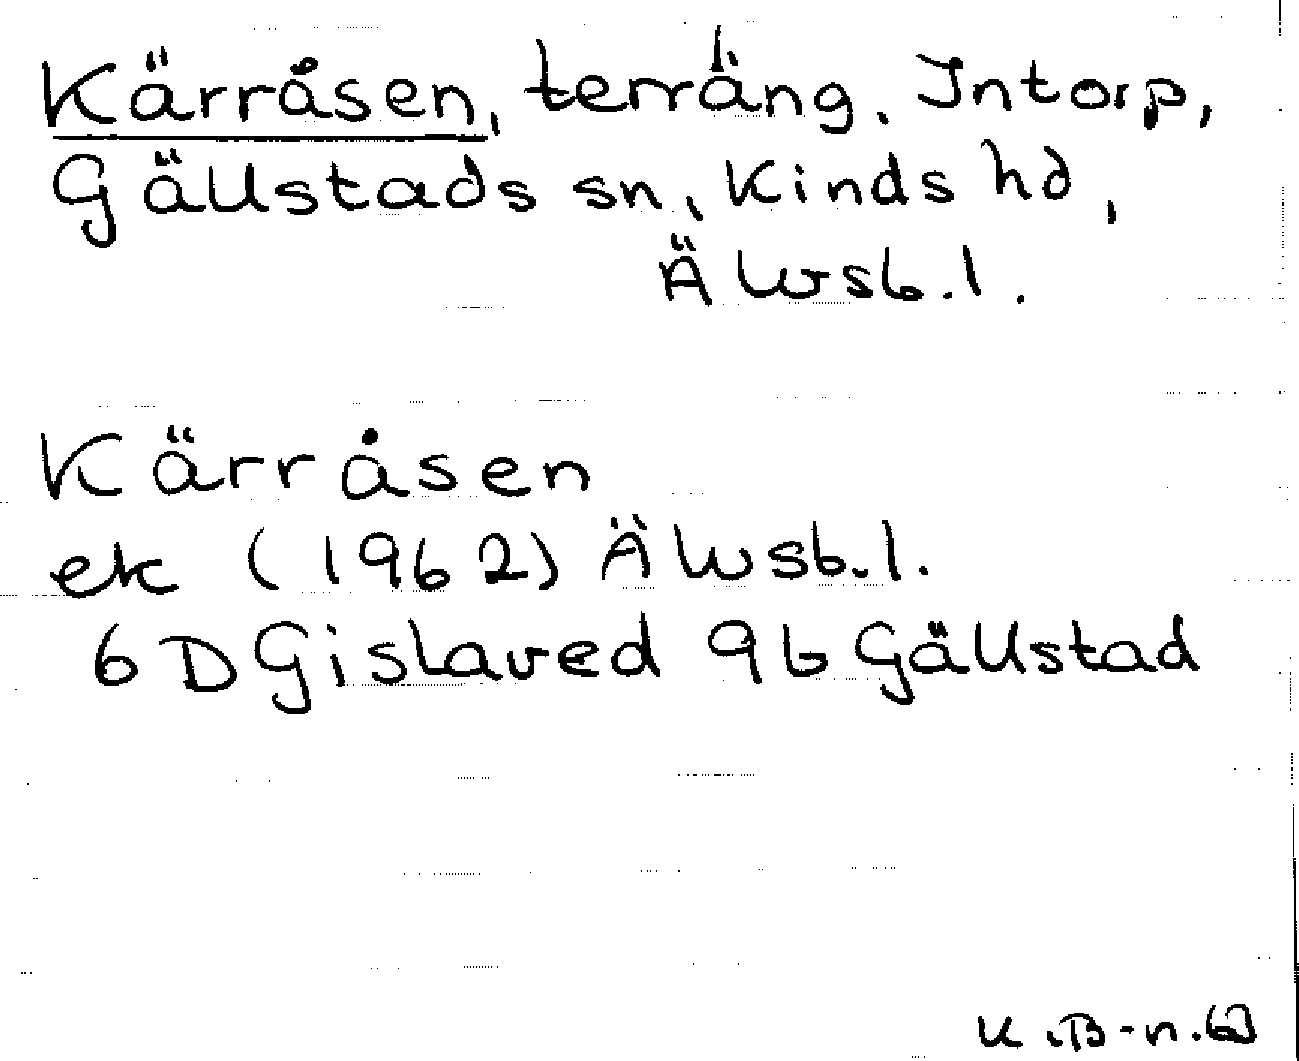 Kärråsen, terräng, Intorp,
Gällstads sn, Kinds hd,
Älvsb.l.
Kärråsen
ek (1962) Älvsb.l.
6D Gislaved 9b Gällstad
K.B-n.63